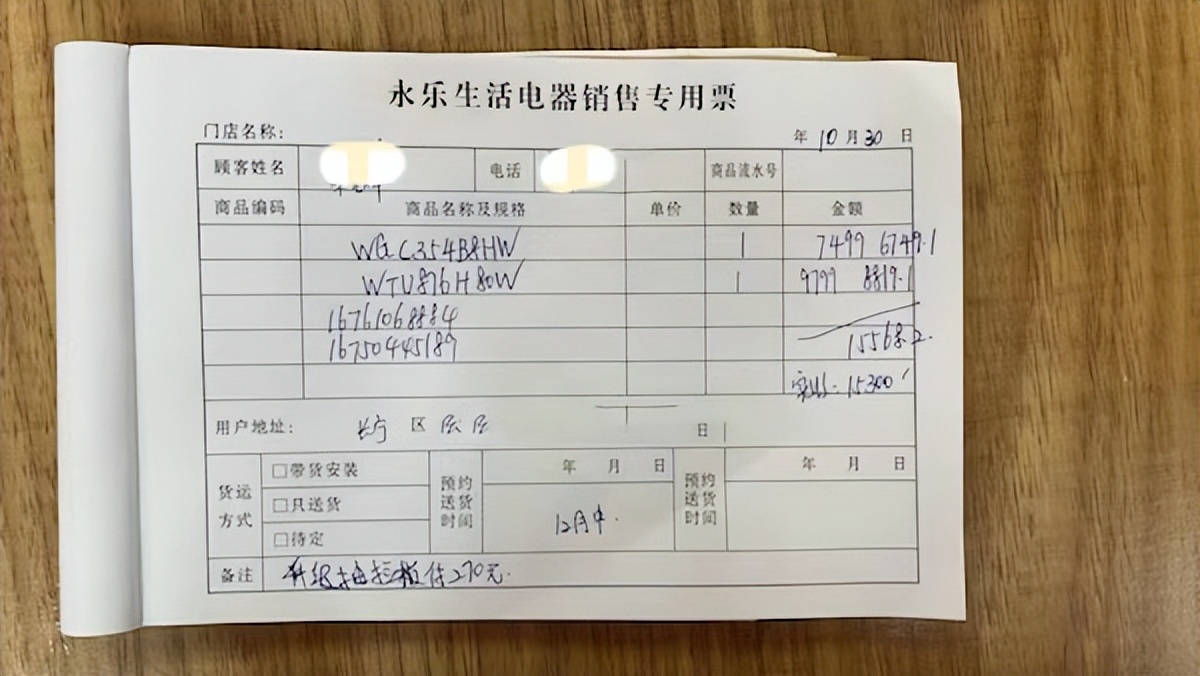 永乐生活电器销售专用票
门店名称: 年 10 月 30 日
顾客姓名 电话 商品流水号
商品编码 商品名称及规格 单价 数量 金额
WGC354B8HW 1 7499 6749.1
WTU876H80W 1 9799 8819.1
16761068884
16750445189 15568.2
15300
用户地址: 长宁 区 日
货运方式 □带货安装 预约送货时间 年 月 日 预约送货时间 年 月 日
□只送货 12月中.
□待定
备注 升级抽拉板付270元.